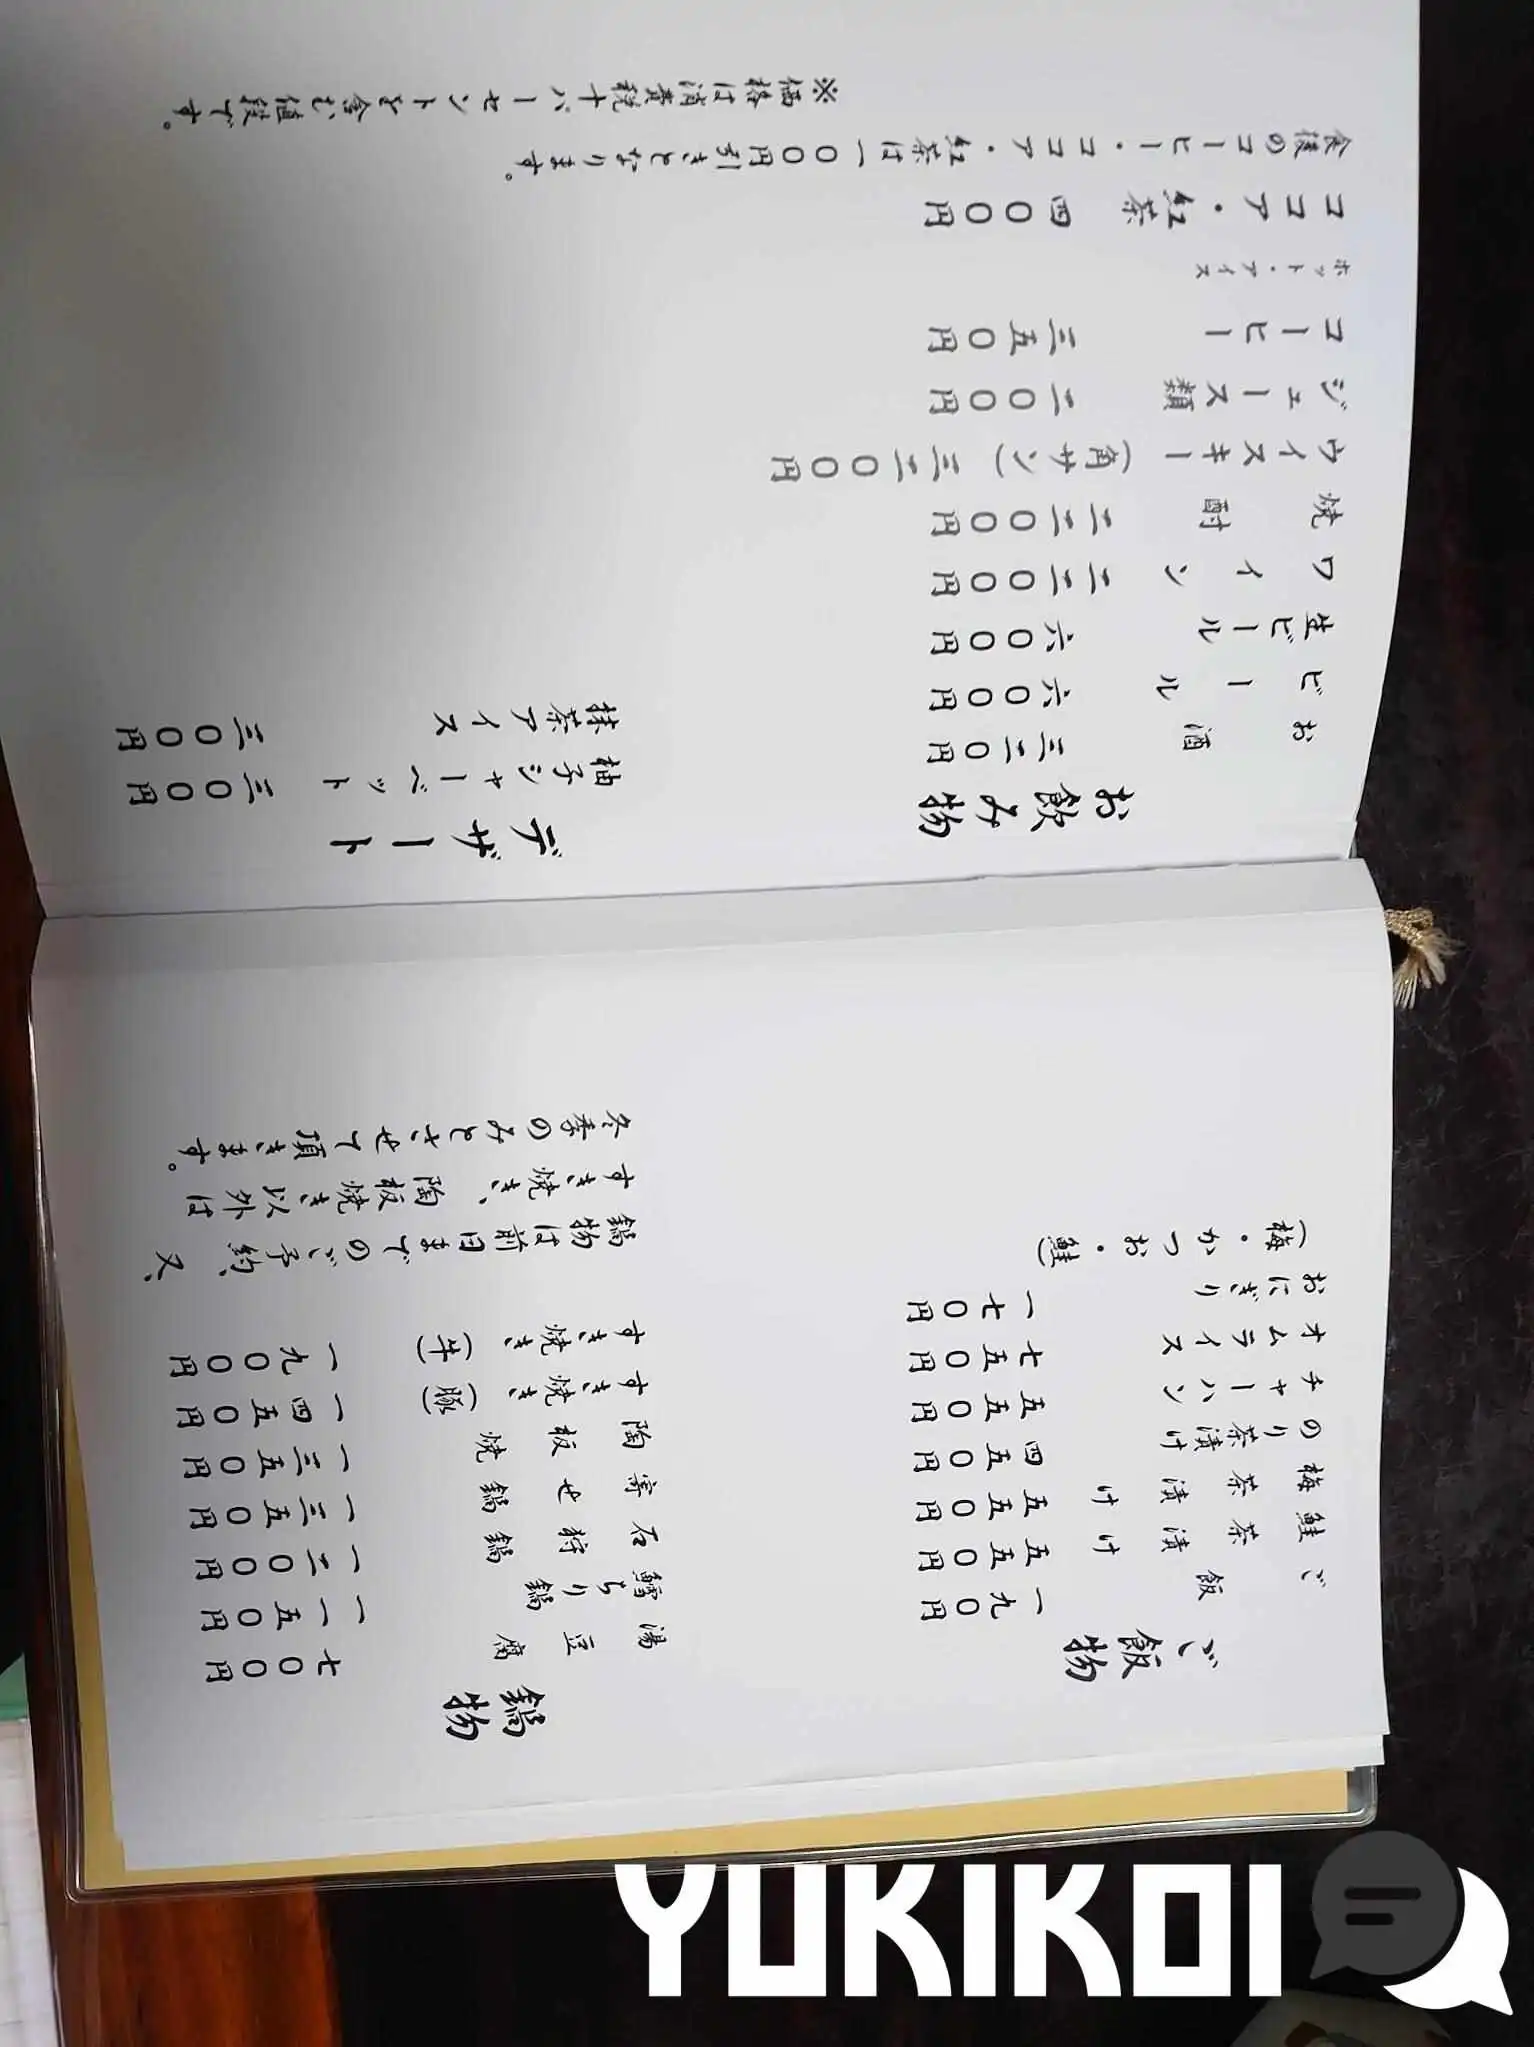 ご飯物
ご飯 一九〇円
鮭茶漬け 五五〇円
梅茶漬け 五五〇円
のり茶漬け 四五〇円
チャーハン 五五〇円
オムライス 七五〇円
おにぎり 一七〇円
(梅・かつお・鮭)
鍋物
湯豆腐 七〇〇円
鱈ちり鍋 一一五〇円
石狩鍋 一二〇〇円
寄せ鍋 一三五〇円
陶板焼 一三五〇円
すき焼き(豚) 一四五〇円
すき焼き(牛) 一九〇〇円
鍋物は前日までのご予約、又、
すき焼き、陶板焼き以外は
冬季のみとさせて頂きます。
お飲み物
お酒 三二〇円
ビール 六〇〇円
生ビール 六〇〇円
ワイン 二二〇〇円
焼酎 二二〇〇円
ウイスキー(角サン) 三二〇〇円
ジュース類 二〇〇円
コーヒー 三五〇円
ホット・アイス
ココア・紅茶 四〇〇円
食後のコーヒー・ココア・紅茶は一〇〇円引きとなります。
※価格は消費税十パーセントを含む値段です。
デザート
柚子シャーベット 三〇〇円
抹茶アイス 三〇〇円
YUKIKOI